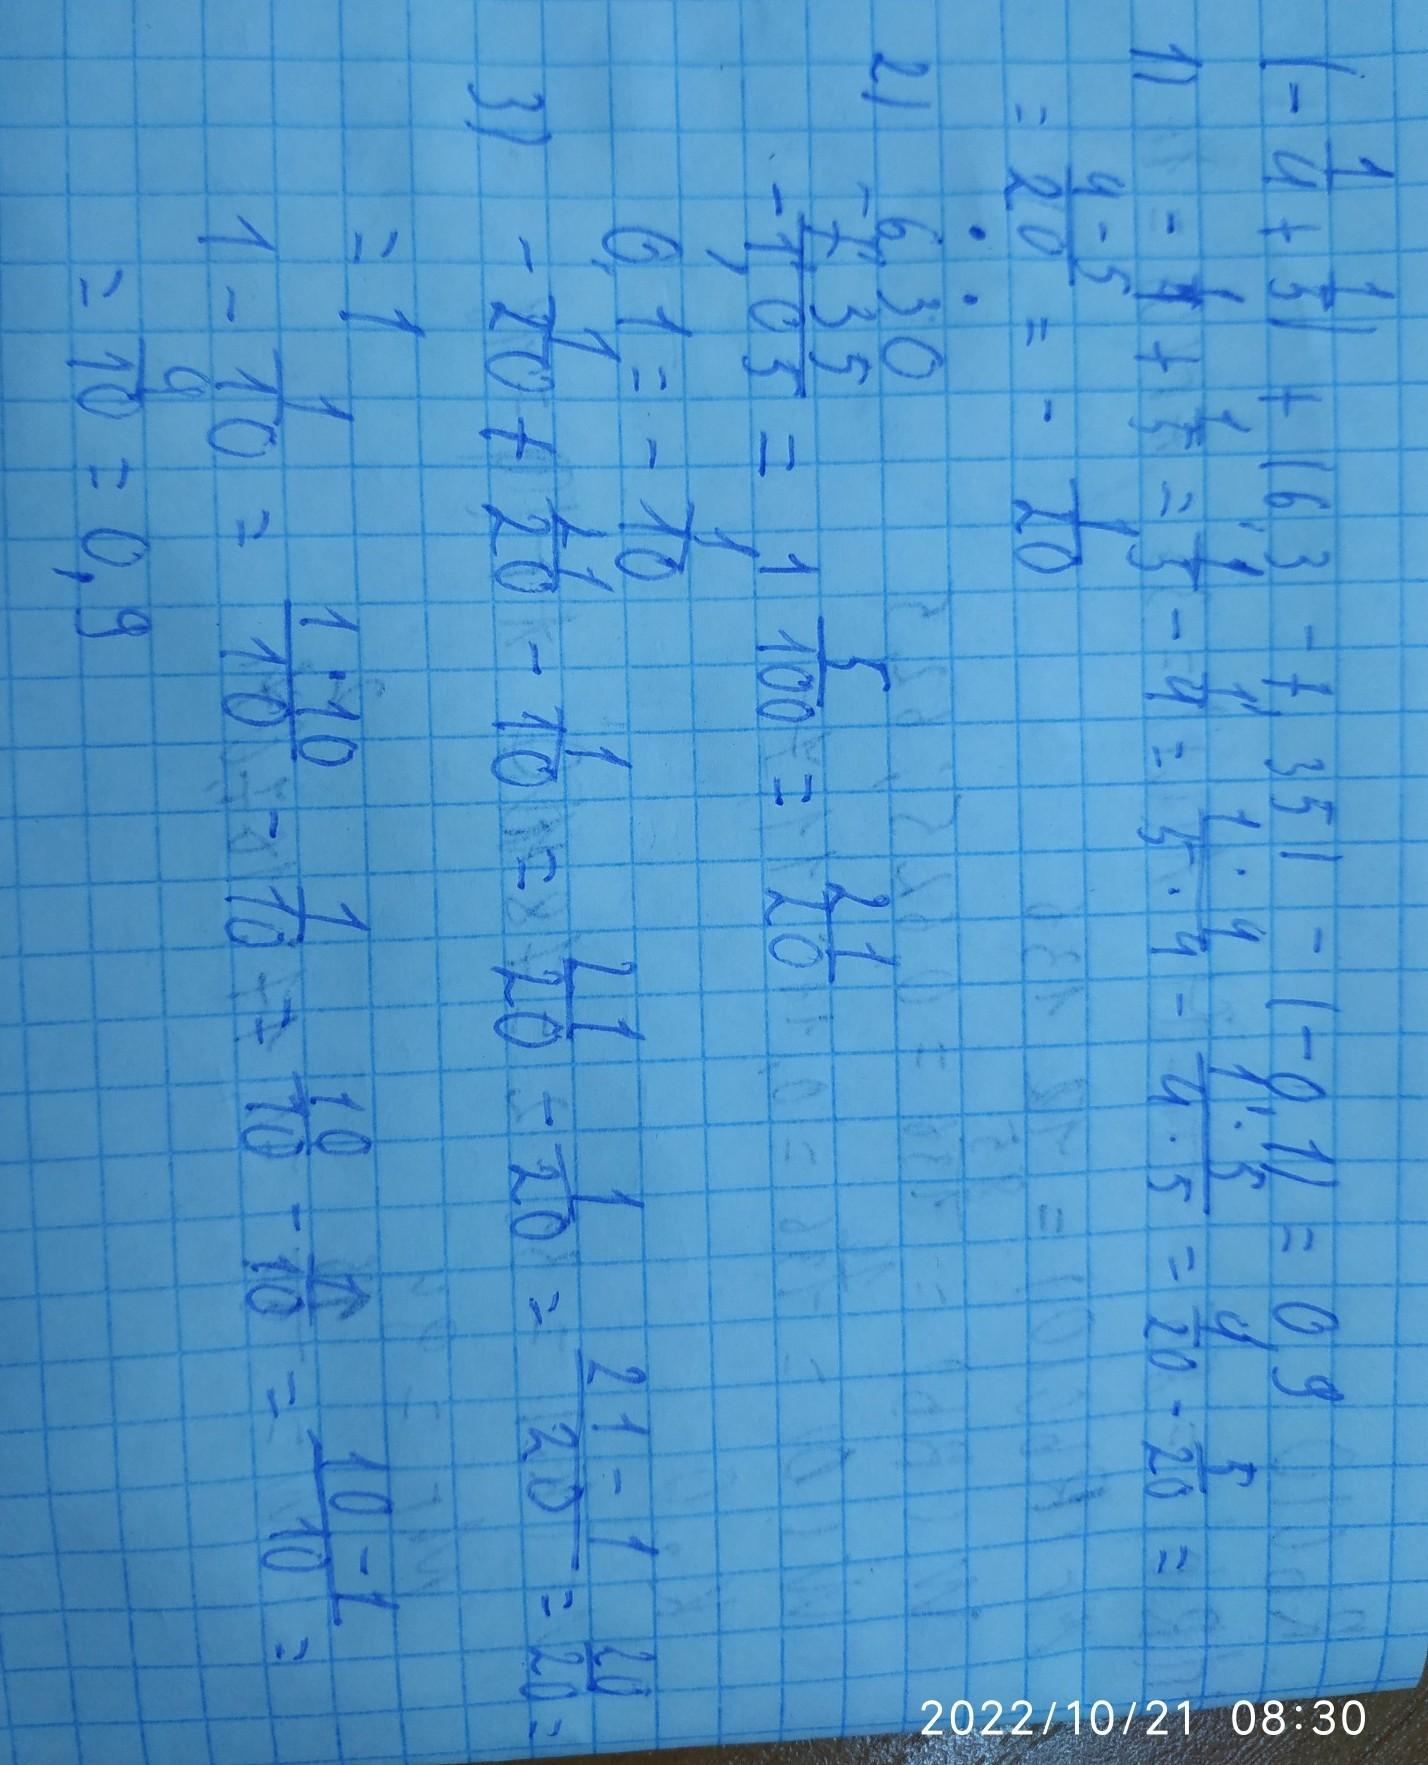 (-1/4 + 1/5) + (6,3 - 7,35) - (-0,1) = 0,9
1) -1/4 + 1/5 = 1/5 - 1/4 = 1·4/5·4 - 1·5/4·5 = 4/20 - 5/20 =
= 4-5/20 = -1/20
2) 6,30
- 7,35
-1,05 = 1 5/100 = 21/20
0,1 = -1/10
3) -1/20 + 21/20 - 1/10 = 21/20 - 1/20 = 21-1/20 = 20/20 =
= 1
1 - 1/10 = 1·10/10 - 1/10 = 10/10 - 1/10 = 10-1/10 =
= 9/10 = 0,9
2022/10/21 08:30